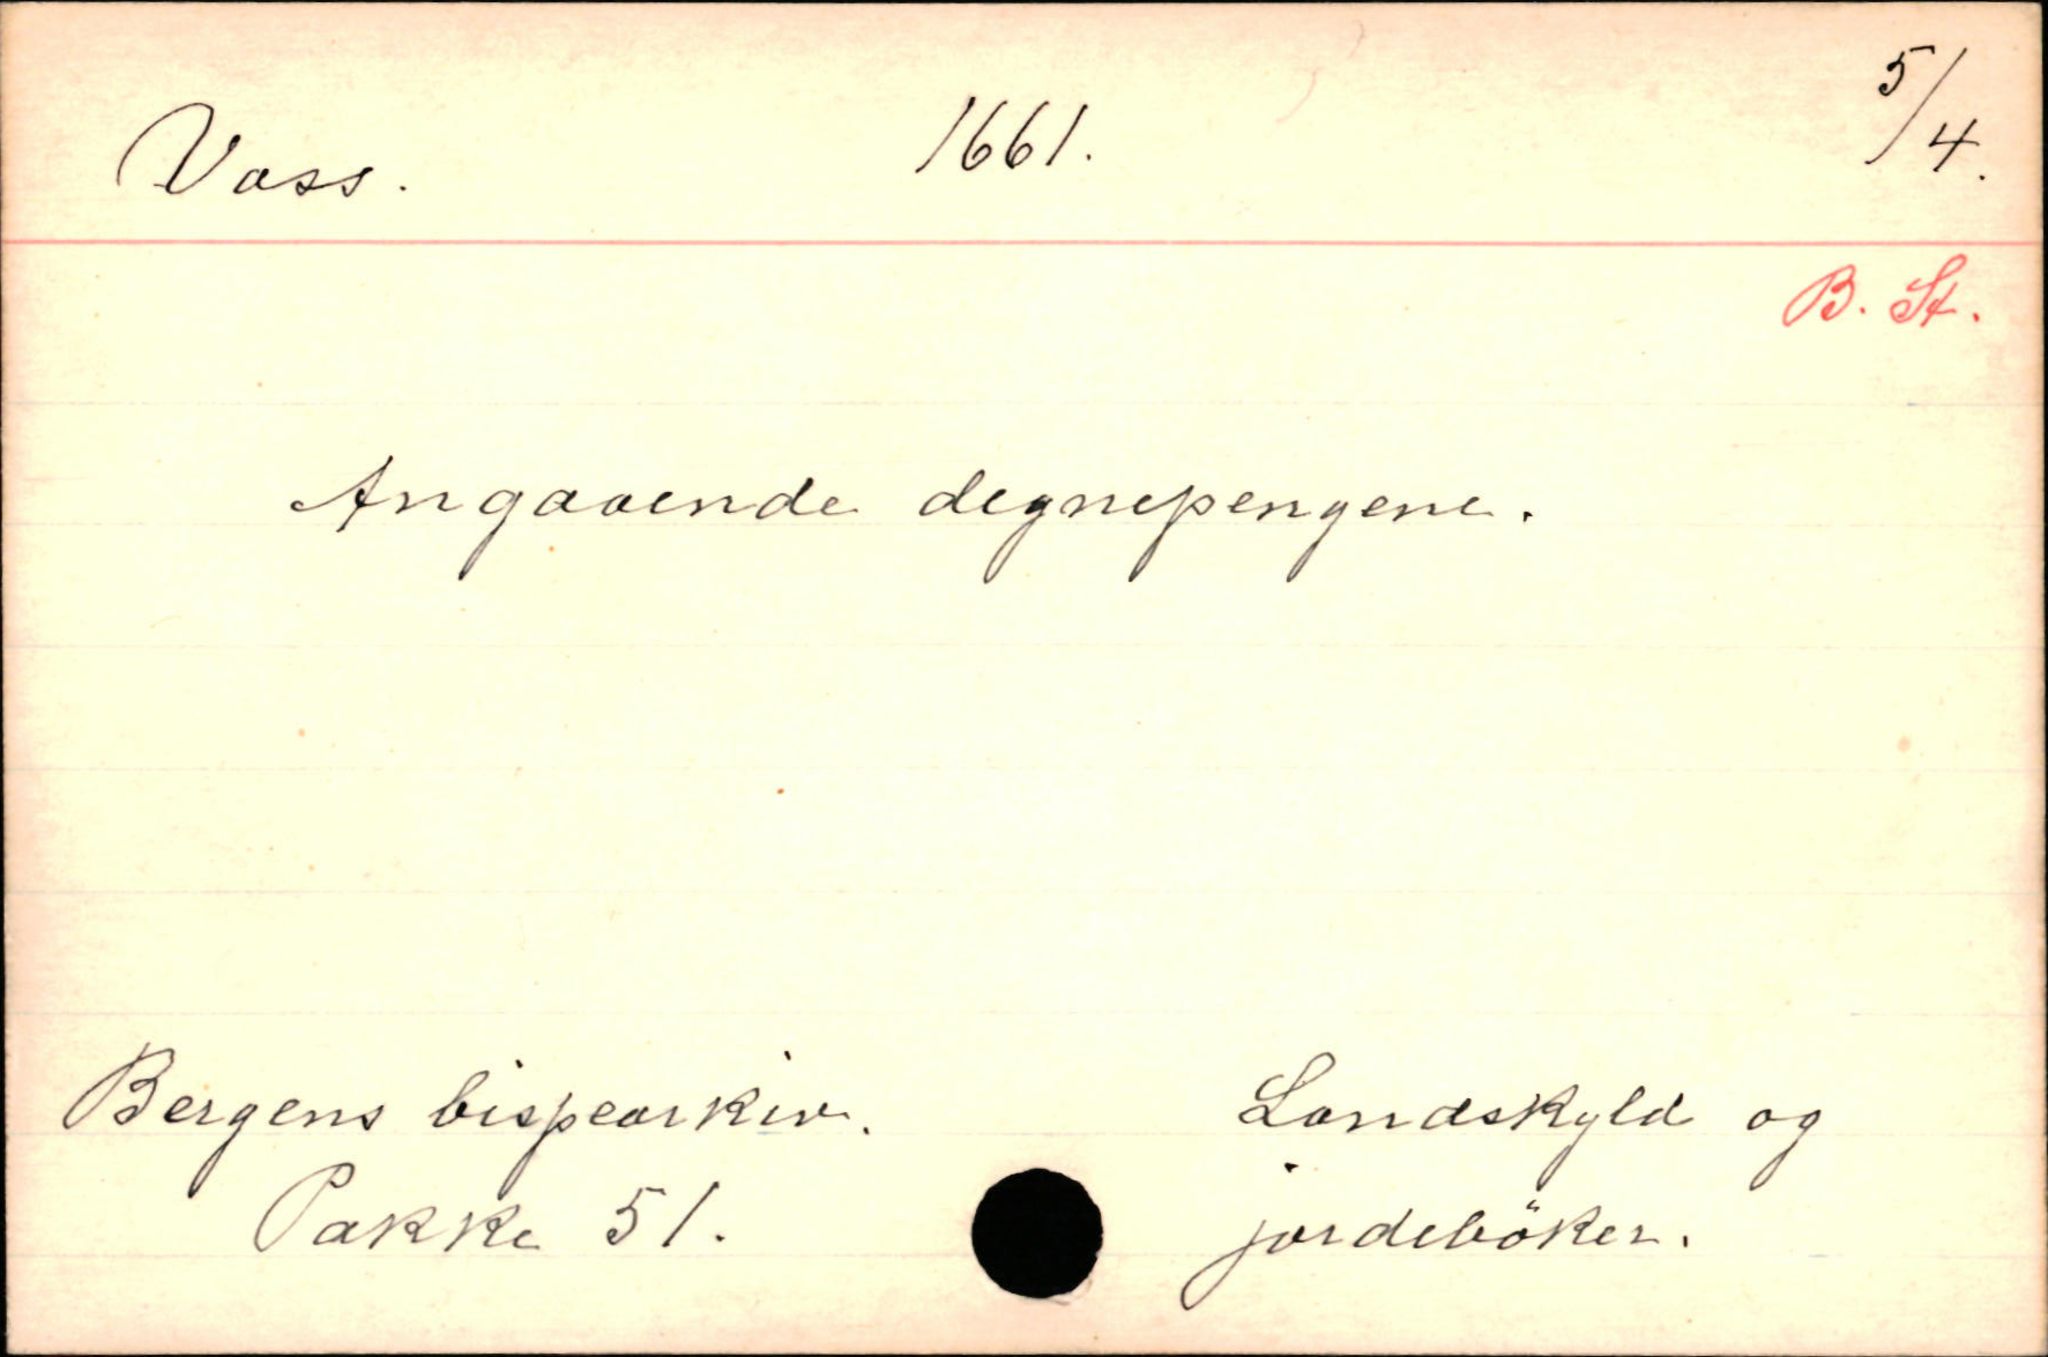 Voss. 1661. 5/4.
B. St.
Angaaende degnepengene.
Bergens bispearkiv. Landskyld og
Pakke 51. jordeböker.